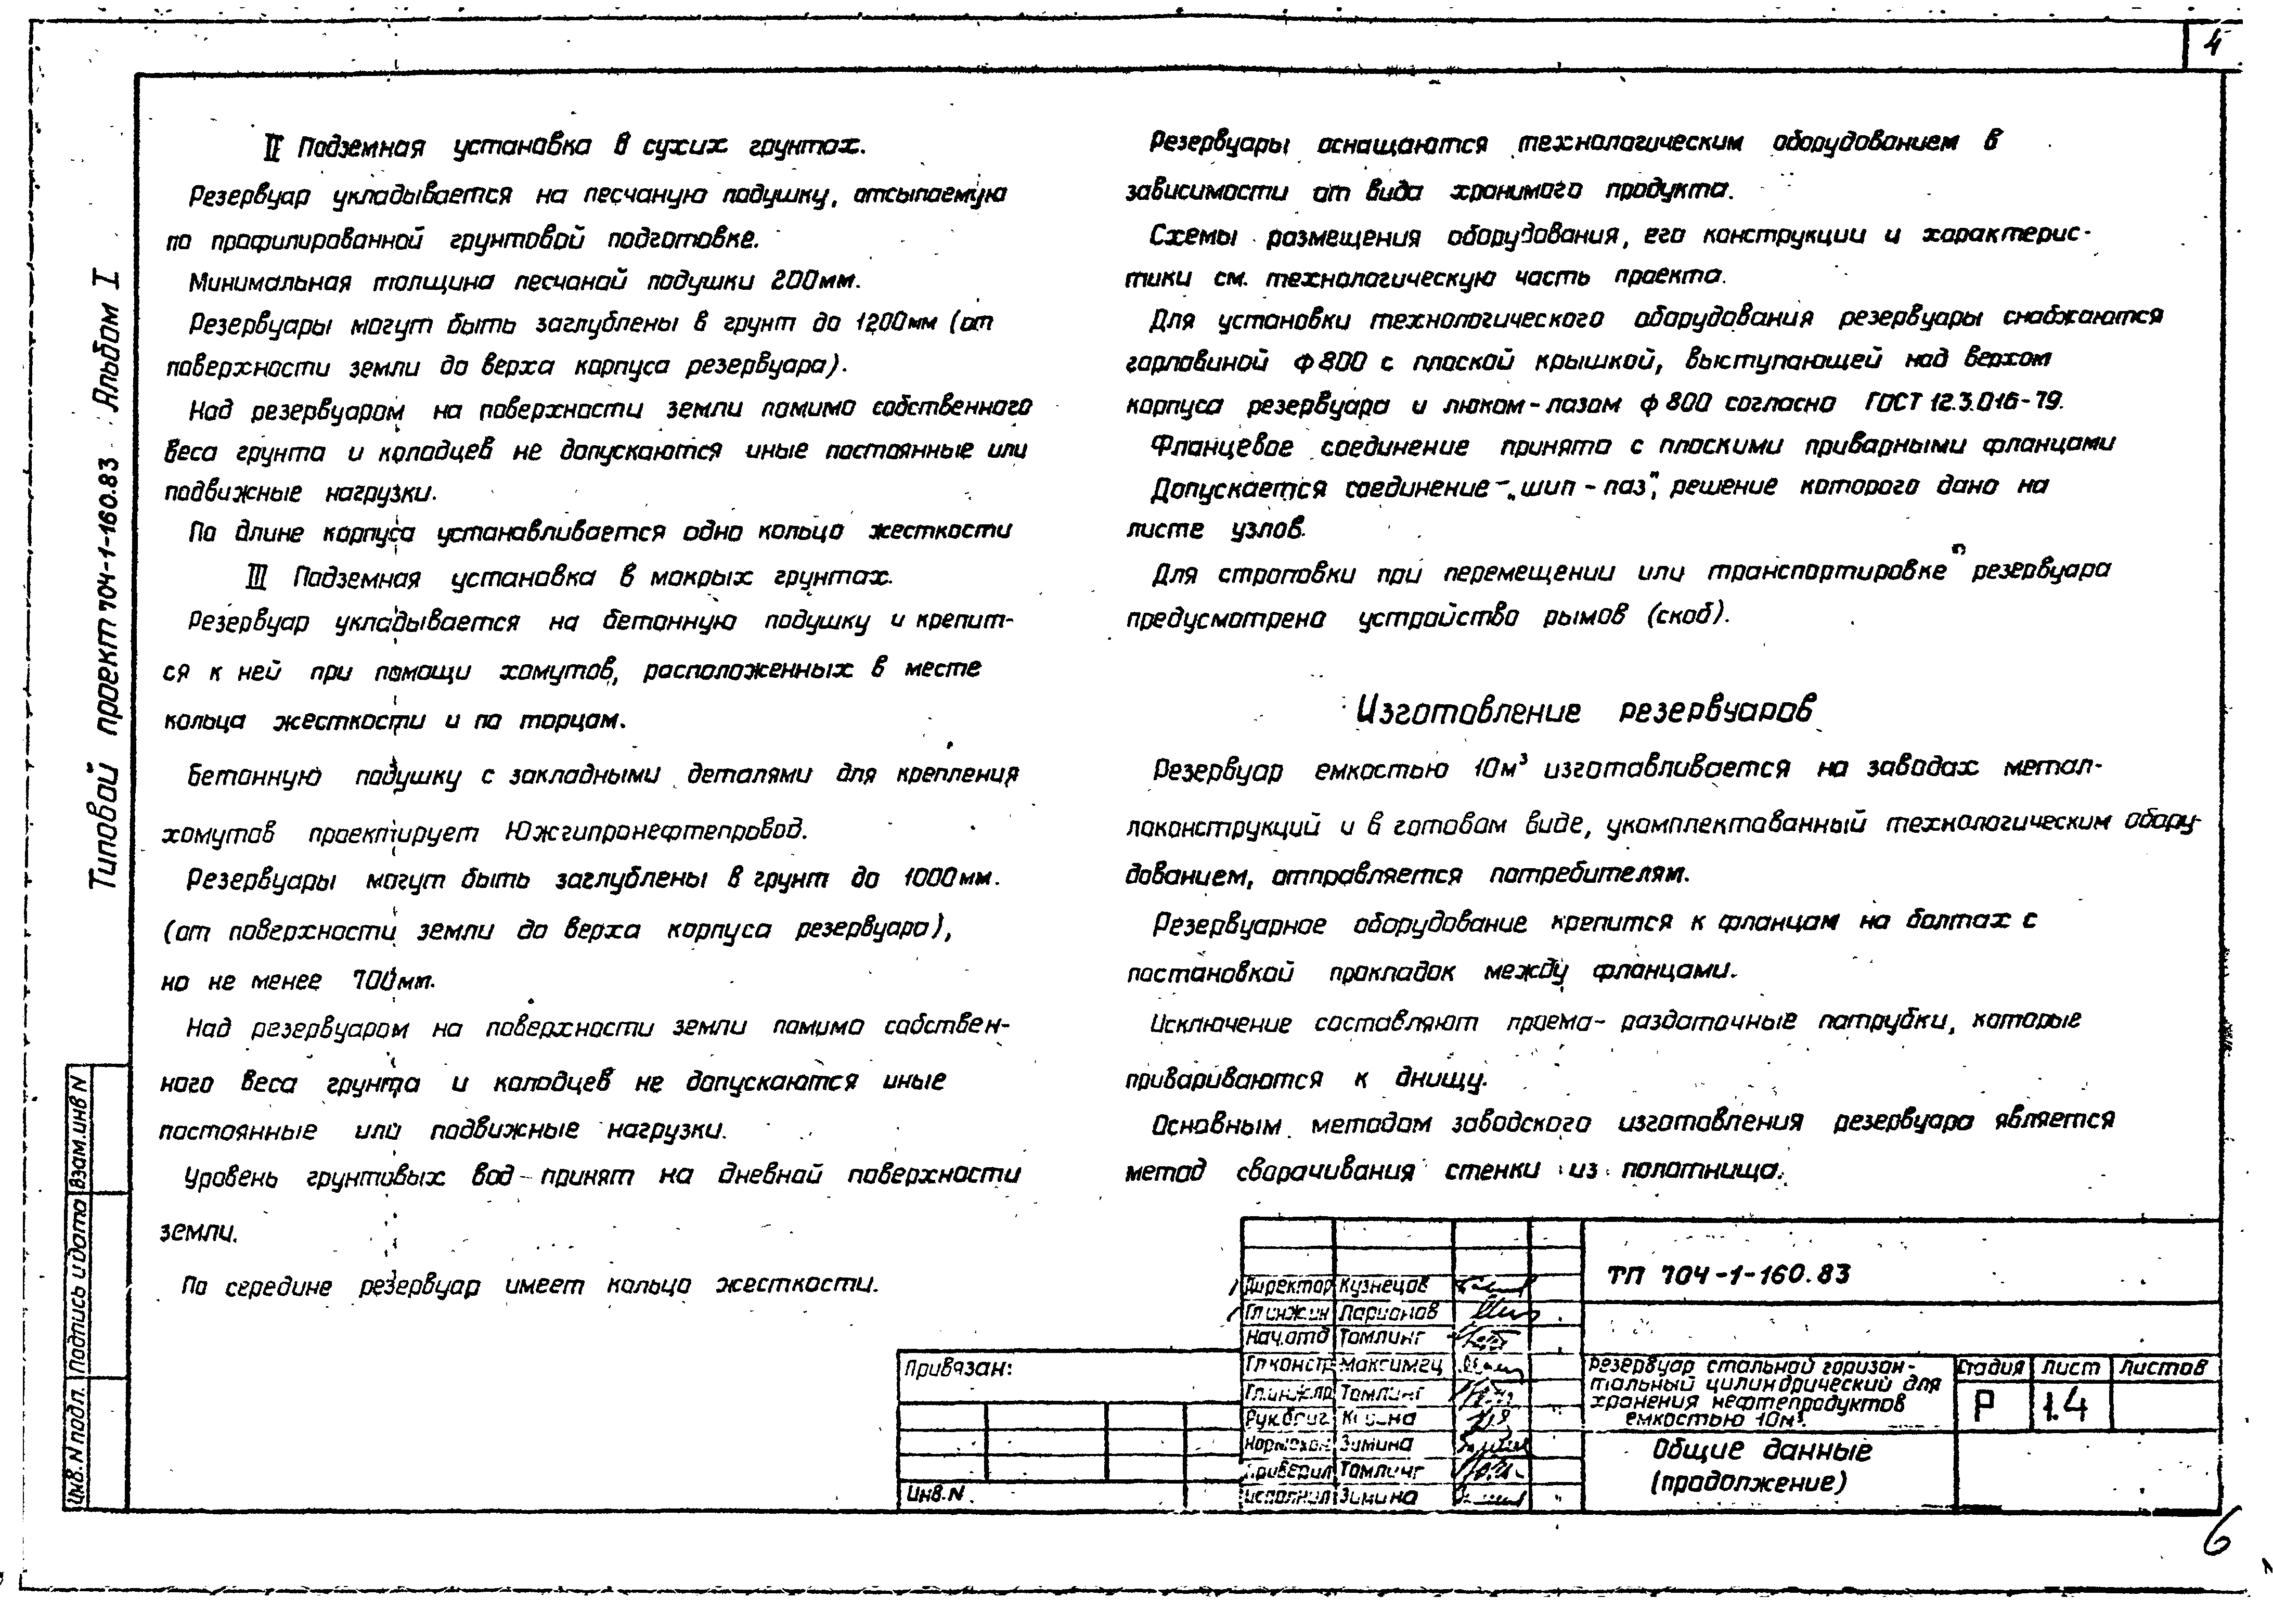 4
Типовой проект 704-1-160.83 Альбом I
II Подземная установка в сухих грунтах.
Резервуар укладывается на песчаную подушку, отсыпаемую
по профилированной грунтовой подготовке.
Минимальная толщина песчаной подушки 200мм.
Резервуары могут быть заглублены в грунт до 1200мм (от
поверхности земли до верха корпуса резервуара).
Над резервуаром на поверхности земли помимо собственного
веса грунта и колодцев не допускаются иные постоянные или
подвижные нагрузки.
По длине корпуса устанавливается одно кольцо жесткости
III Подземная установка в мокрых грунтах.
Резервуар укладывается на бетонную подушку и крепит-
ся к ней при помощи хомутов, расположенных в месте
кольца жесткости и по торцам.
Бетонную подушку с закладными деталями для крепления
хомутов проектирует Южгипронефтепровод.
Резервуары могут быть заглублены в грунт до 1000мм.
(от поверхности земли до верха корпуса резервуара),
но не менее 700мм.
Над резервуаром на поверхности земли помимо собствен-
ного веса грунта и колодцев не допускаются иные
постоянные или подвижные нагрузки.
Уровень грунтовых вод принят на дневной поверхности
земли.
По середине резервуар имеет кольцо жесткости.
Резервуары оснащаются технологическим оборудованием в
зависимости от вида хранимого продукта.
Схемы размещения оборудования, его конструкции и характерис-
тики см. технологическую часть проекта.
Для установки технологического оборудования резервуары снабжаются
горловиной ф 800 с плоской крышкой, выступающей над верхом
корпуса резервуара и люком-лазом ф 800 согласно ГОСТ 12.3.016-79.
Фланцевое соединение принято с плоскими приварными фланцами
Допускается соединение - „шип - паз", решение которого дано на
листе узлов.
Для строповки при перемещении или транспортировке резервуара
предусмотрено устройство рымов (скоб).
Изготовление резервуаров
Резервуар емкостью 10м³ изготавливается на заводах метал-
локонструкций и в готовом виде, укомплектованный технологическим обору-
дованием, отправляется потребителям.
Резервуарное оборудование крепится к фланцам на болтах с
постановкой прокладок между фланцами.
Исключение составляют приемо-раздаточные патрубки, которые
привариваются к днищу.
Основным методом заводского изготовления резервуара является
метод сворачивания стенки из полотнища.
Инв. N подл. Подпись и дата Взам.инв N
Привязан:
Инв. N
Директор Кузнецов
Гл инж ин Ларионов
Нач.отд Томлинг
Гл констр Максимец
Гл.инж.пр Томлинг
Рук.бриг
Нормокон Зимина
Проверил Томлинг
Исполнил Зимина
ТП 704-1-160.83
Резервуар стальной горизон-
тальный цилиндрический для
хранения нефтепродуктов
емкостью 10м³.
Стадия Лист Листов
Р 1.4
Общие данные
(продолжение)
6